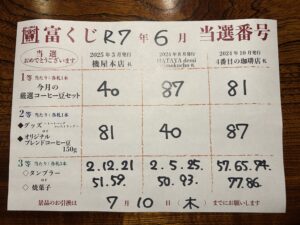 富くじ R7年 6月 当選番号
当選
おめでとうございます
2025年5月発行
機屋本店
2024年8月発行
HATAYA demi
2024年10月発行
4番目の珈琲店
1等 当たり:各札1本
今月の
厳選コーヒー豆セット
40 87 81
2等
◆グッズ
◆オリジナル
ブレンドコーヒー豆
150g
81 40 87
3等
◇タンブラー
◇焼菓子
2.12.21
51.59.
2.5.25.
50.93.
57.65.74.
77.86.
景品のお引換は 7月10日(木)までにお願いします